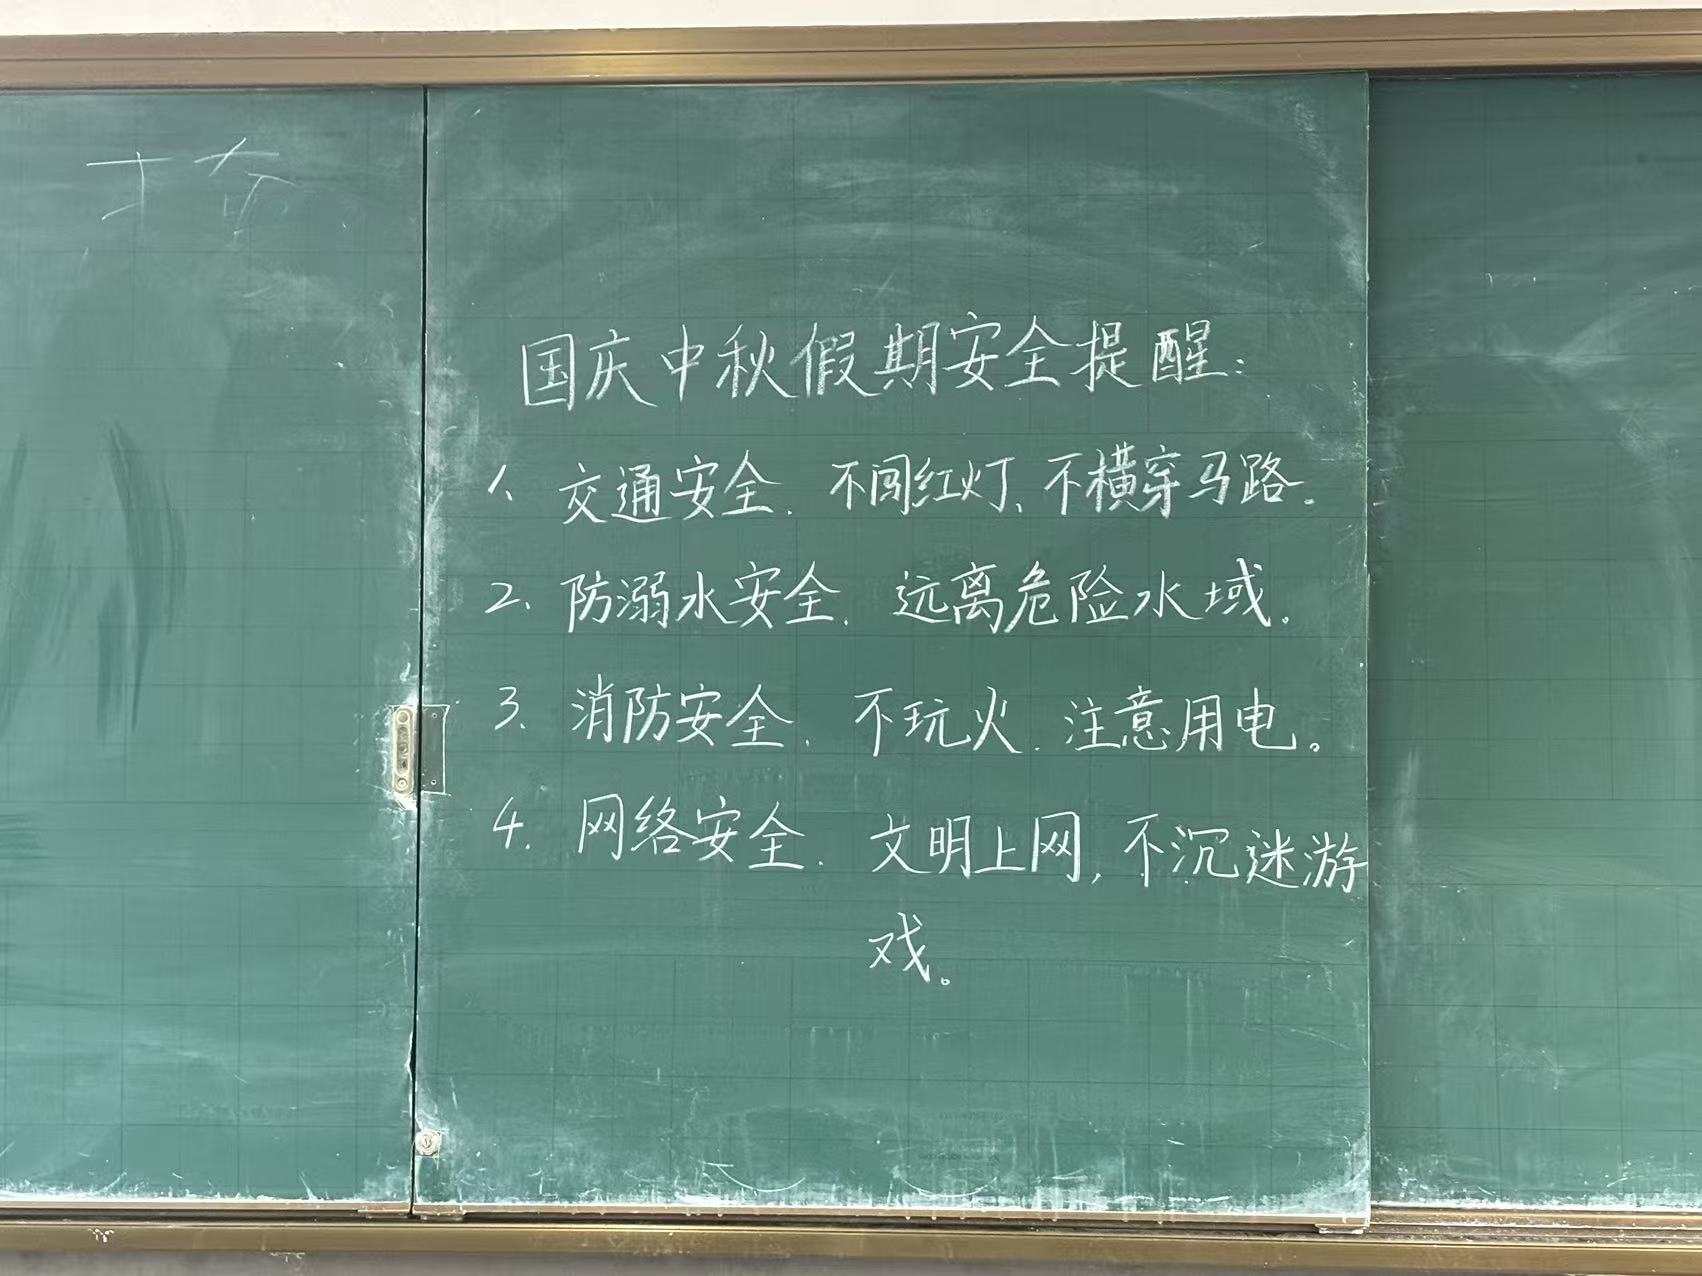 国庆中秋假期安全提醒:
1、交通安全. 不闯红灯、不横穿马路.
2、防溺水安全. 远离危险水域.
3、消防安全. 不玩火. 注意用电。
4. 网络安全. 文明上网, 不沉迷游
戏。